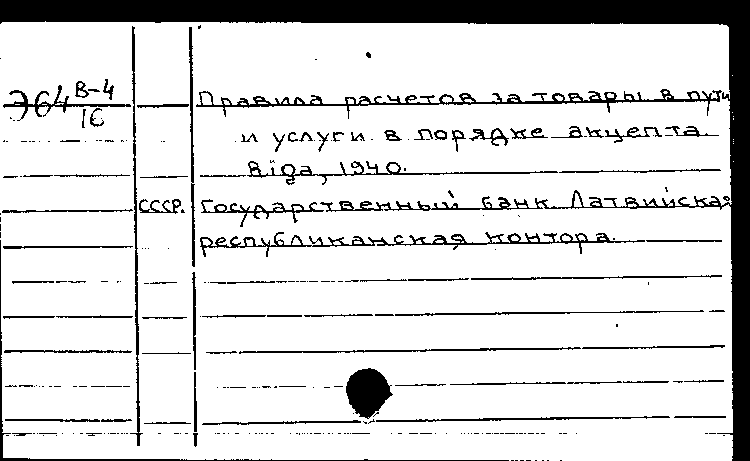 Э64 В-4/16 Правила расчетов за товары в пути
и услуги в порядке акцепта.
Rīga, 1940.
СССР. Государственный банк. Латвийская
республиканская контора.